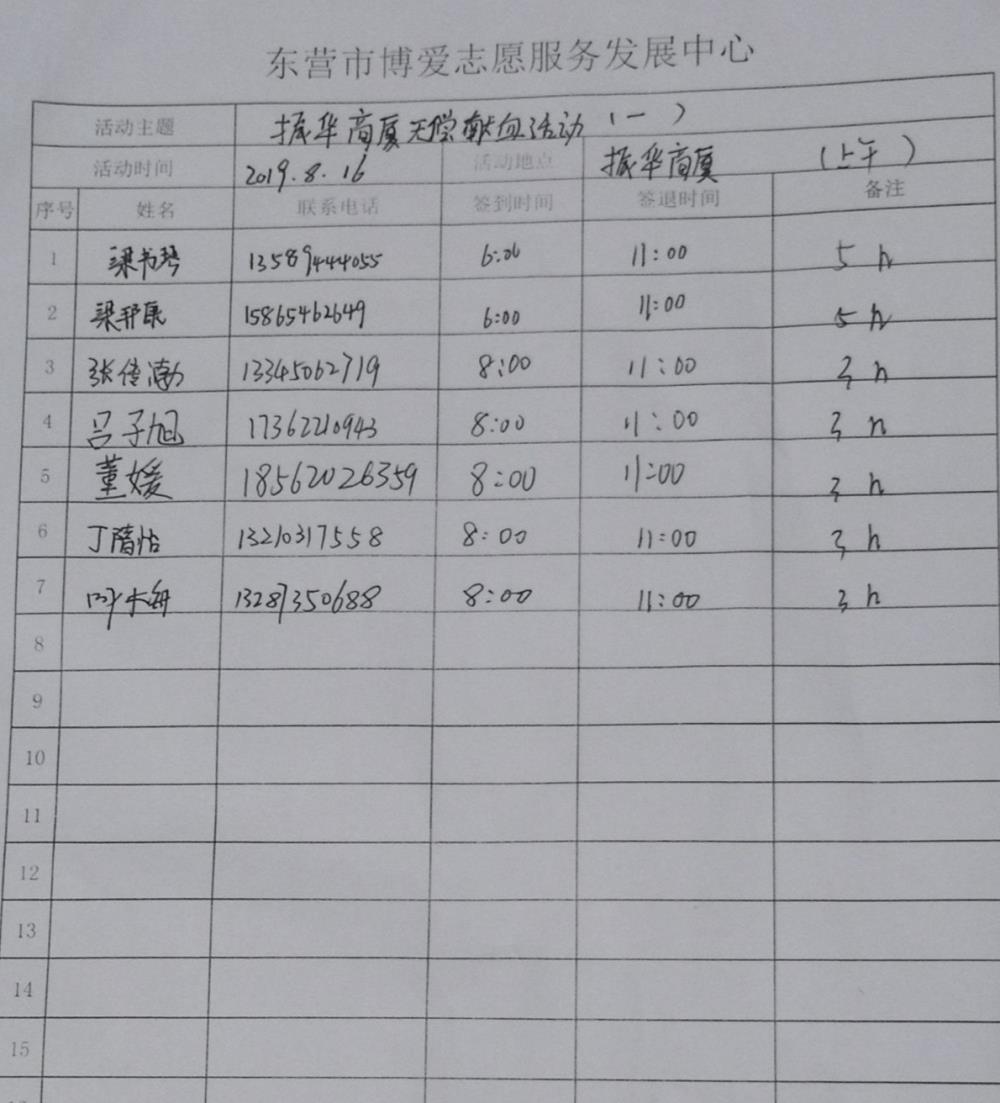 东营市博爱志愿服务发展中心
活动主题 振华商厦无偿献血活动(一)
活动时间 2019.8.16 活动地点 振华商厦 (上午)
序号 姓名 联系电话 签到时间 签退时间 备注
1 梁书琴 13589444055 6:00 11:00 5h
2 梁邦康 15865462649 6:00 11:00 5h
3 张传渤 13345062719 8:00 11:00 3h
4 吕子旭 17362210943 8:00 11:00 3h
5 董媛 18562026359 8:00 11:00 3h
6 丁蓓怡 13210317558 8:00 11:00 3h
7 13287350688 8:00 11:00 3h
8
9
10
11
12
13
14
15